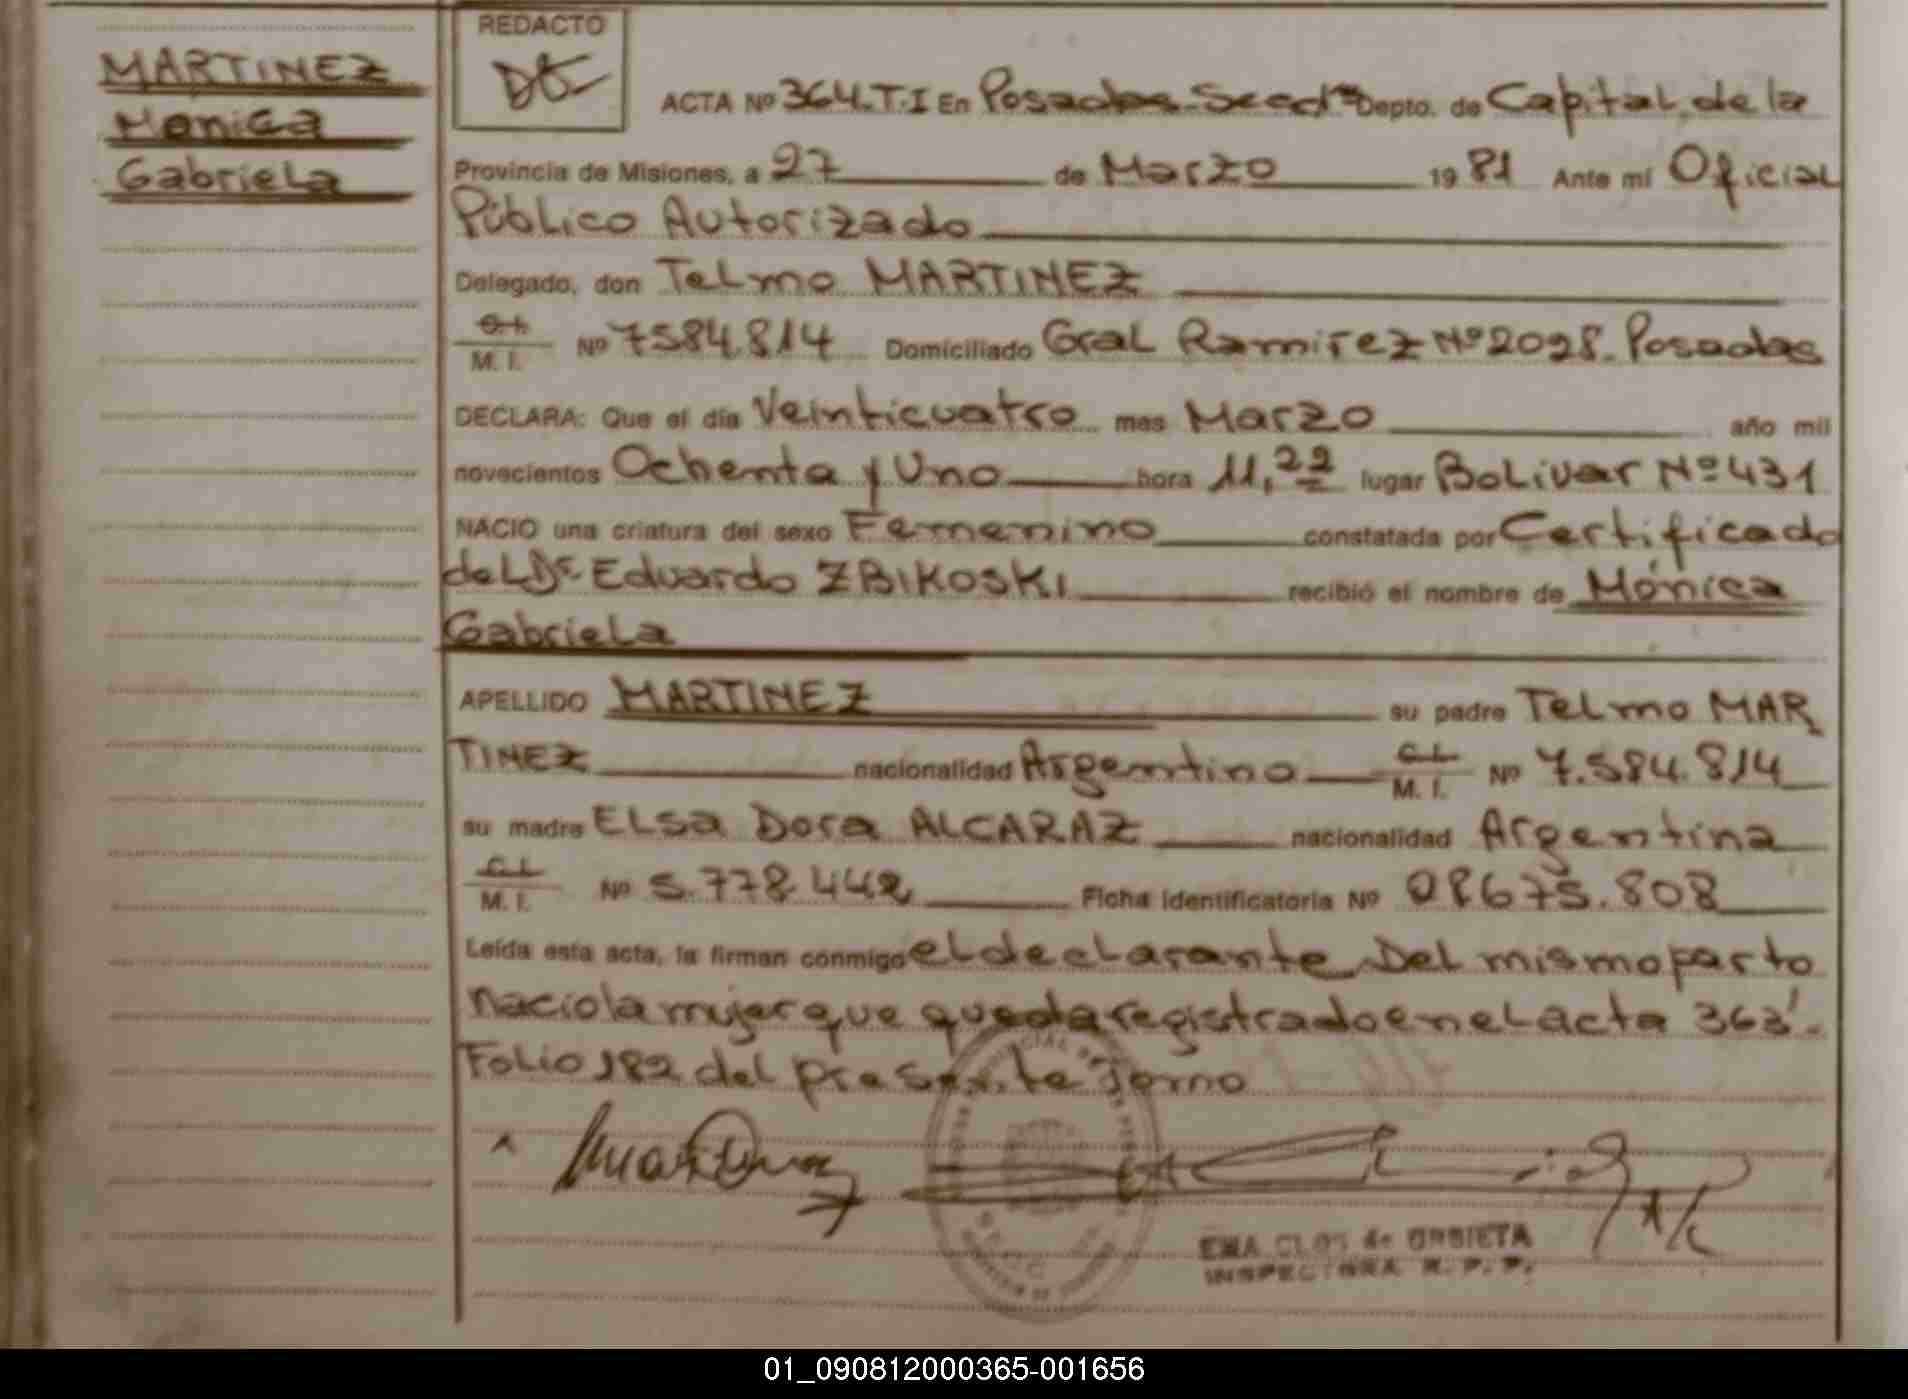 MARTINEZ
Mónica
Gabriela
REDACTO
ACTA Nº 364.T.I En Posadas Secc 1ª Depto. de Capital, de la
Provincia de Misiones, a 27 de Marzo 1981 Ante mí Oficial
Público Autorizado
Delegado, don Telmo MARTINEZ
C.I. / M. I. Nº 7584.814 Domiciliado Gral Ramirez Nº 2098. Posadas
DECLARA: Que el día Veinticuatro mes Marzo año mil
novecientos Ochenta y Uno hora 11,22 lugar Bolivar Nº 431
NACIO una criatura del sexo Femenino constatada por Certificado
del Dr. Eduardo ZBIKOSKI recibió el nombre de Mónica
Gabriela
APELLIDO MARTINEZ su padre Telmo MAR
TINEZ nacionalidad Argentino C.I. / M. I. Nº 7.584.814
su madre ELsa Dora ALCARAZ nacionalidad Argentina
C.I. / M. I. Nº 5.778.442 Ficha identificatoria Nº 08675.808
Leída esta acta, la firman conmigo el declarante Del mismo parto
nacio la mujer que queda registrado en el acta 363
Folio 182 del presente tomo
EMA CLOS de URBIETA
INSPECTORA R. P. P.
01_090812000365-001656